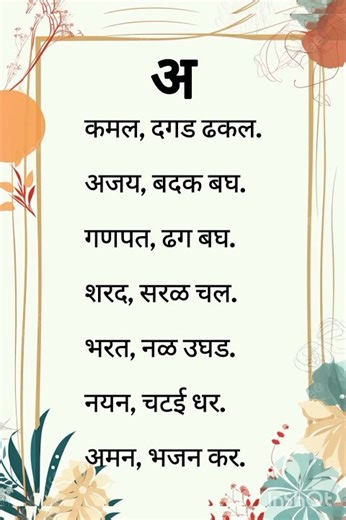 अ
कमल, दगड ढकल.
अजय, बदक बघ.
गणपत, ढग बघ.
शरद, सरळ चल.
भरत, नळ उघड.
नयन, चटई धर.
अमन, भजन कर.